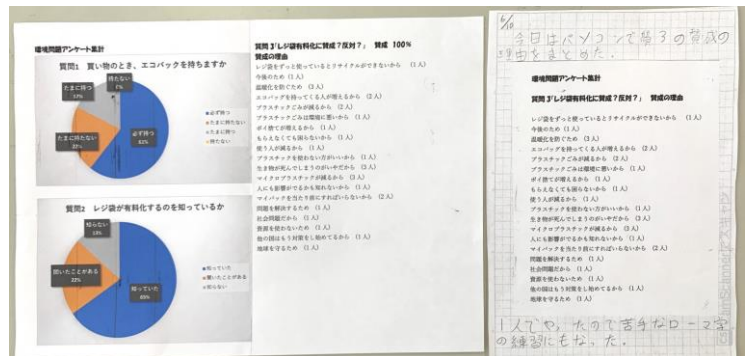 環境問題アンケート集計
質問1 買い物のとき、エコバックを持ちますか
持たない
1%
たまに持つ
17%
たまに持たない
20%
必ず持つ
62%
必ず持つ
たまに持たない
たまに持つ
持たない
質問2 レジ袋が有料化するのを知っているか
知らない
13%
聞いたことがある
22%
知っていた
65%
知っていた
聞いたことがある
知らない
質問3「レジ袋有料化に賛成?反対?」 賛成 100%
賛成の理由
レジ袋をずっと使っているとリサイクルができないから (1人)
今後のため (1人)
温暖化を防ぐため (3人)
エコバッグを持ってくる人が増えるから (2人)
プラスチックごみが減るから (2人)
プラスチックごみは環境に悪いから (1人)
ポイ捨てが増えるから (1人)
もらえなくても困らないから (1人)
使う人が減るから (1人)
プラスチックを使わない方がいいから (1人)
生き物が死んでしまうのがいやだから (3人)
マイクロプラスチックが減るから (3人)
人にも影響がでるかも知れないから (1人)
マイバックを当たり前にすればいらないから (2人)
問題を解決するため (1人)
社会問題だから (1人)
資源を使わないため (1人)
他の国はもう対策をし始めてるから (1人)
地球を守るため (1人)
6/10
今日はパソコンで質3の賛成の
理由をまとめた。
環境問題アンケート集計
質問3「レジ袋有料化に賛成?反対?」 賛成の理由
レジ袋をずっと使っているとリサイクルができないから (1人)
今後のため (1人)
温暖化を防ぐため (3人)
エコバッグを持ってくる人が増えるから (2人)
プラスチックごみが減るから (2人)
プラスチックごみは環境に悪いから (1人)
ポイ捨てが増えるから (1人)
もらえなくても困らないから (1人)
使う人が減るから (1人)
プラスチックを使わない方がいいから (1人)
生き物が死んでしまうのがいやだから (3人)
マイクロプラスチックが減るから (3人)
人にも影響がでるかも知れないから (1人)
マイバックを当たり前にすればいらないから (2人)
問題を解決するため (1人)
社会問題だから (1人)
資源を使わないため (1人)
他の国はもう対策をし始めてるから (1人)
地球を守るため (1人)
1人でやったので苦手なローマ字
の練習にもなった。